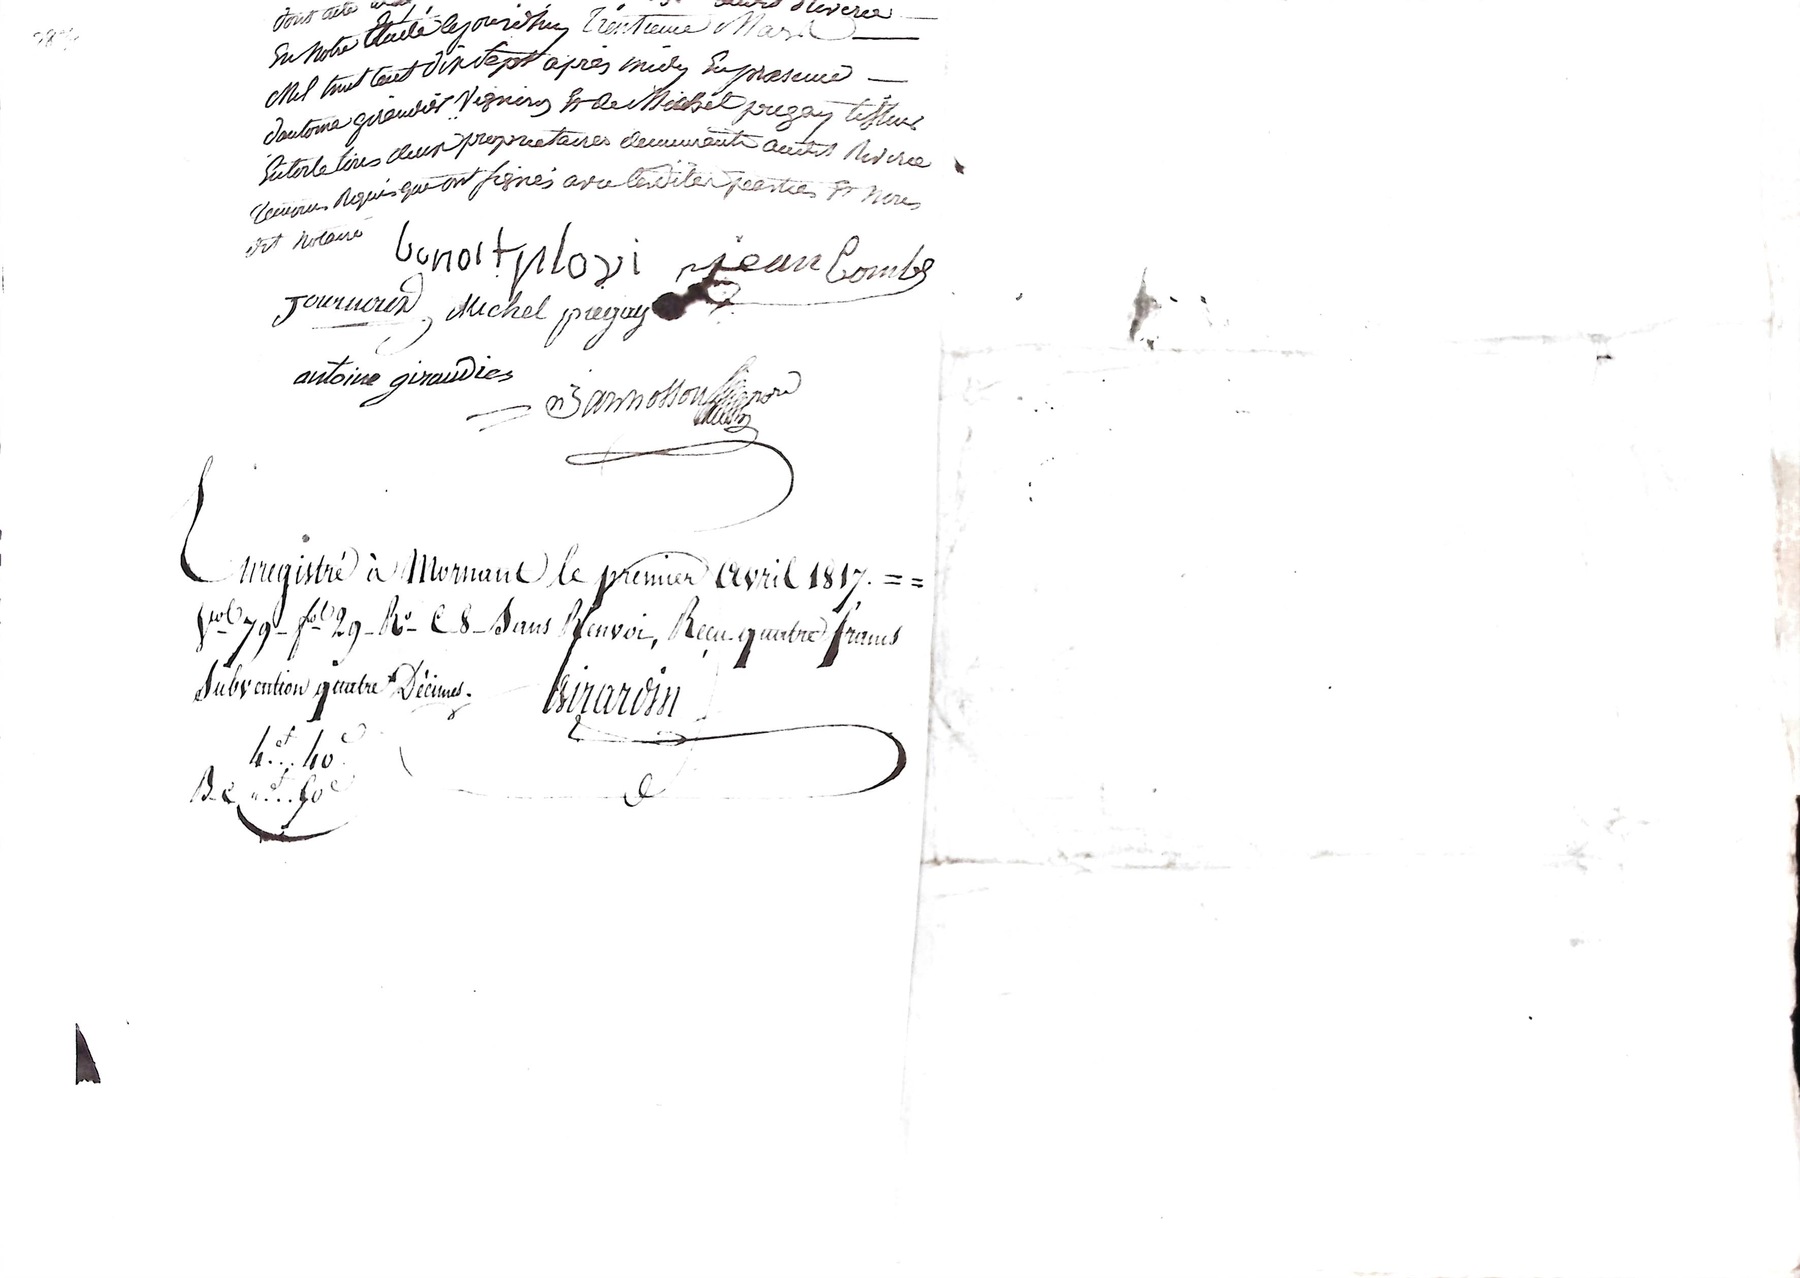 Dont acte
En Notre Etude cejourdhuy trentieme Mars
Mil huit cent dix sept après midy En presence
d'antoine giraudier Vigneron Et de Michel pregay tisseur
En toile tous deux proprietaires demeurants audit Riverie
temoins Requis qui ont signés avec lesdites parties Et nous
dit Notaire
benoit plovi jean Combe
Journoud Michel pregay
antoine giraudier
Enregistré à Mornant le premier avril 1817. = =
vol 79 - fol 29 - Ro C 8 - Sans Renvoi, Reçu quatre francs
Subvention quatre Décimes. Girardin
4.f.. 40c